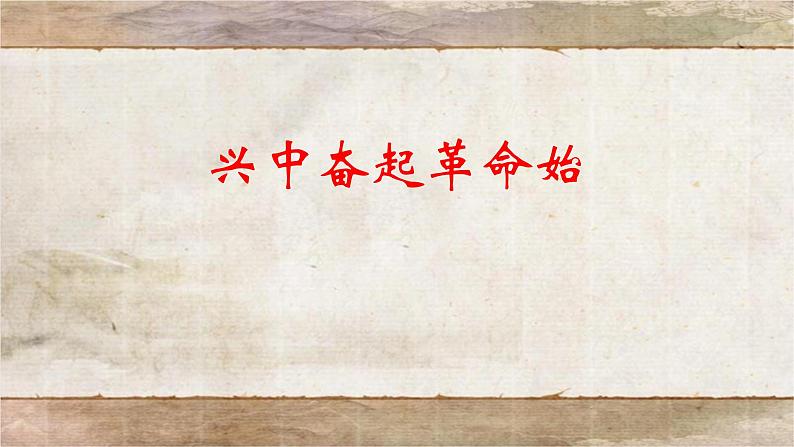 兴中奋起革命始